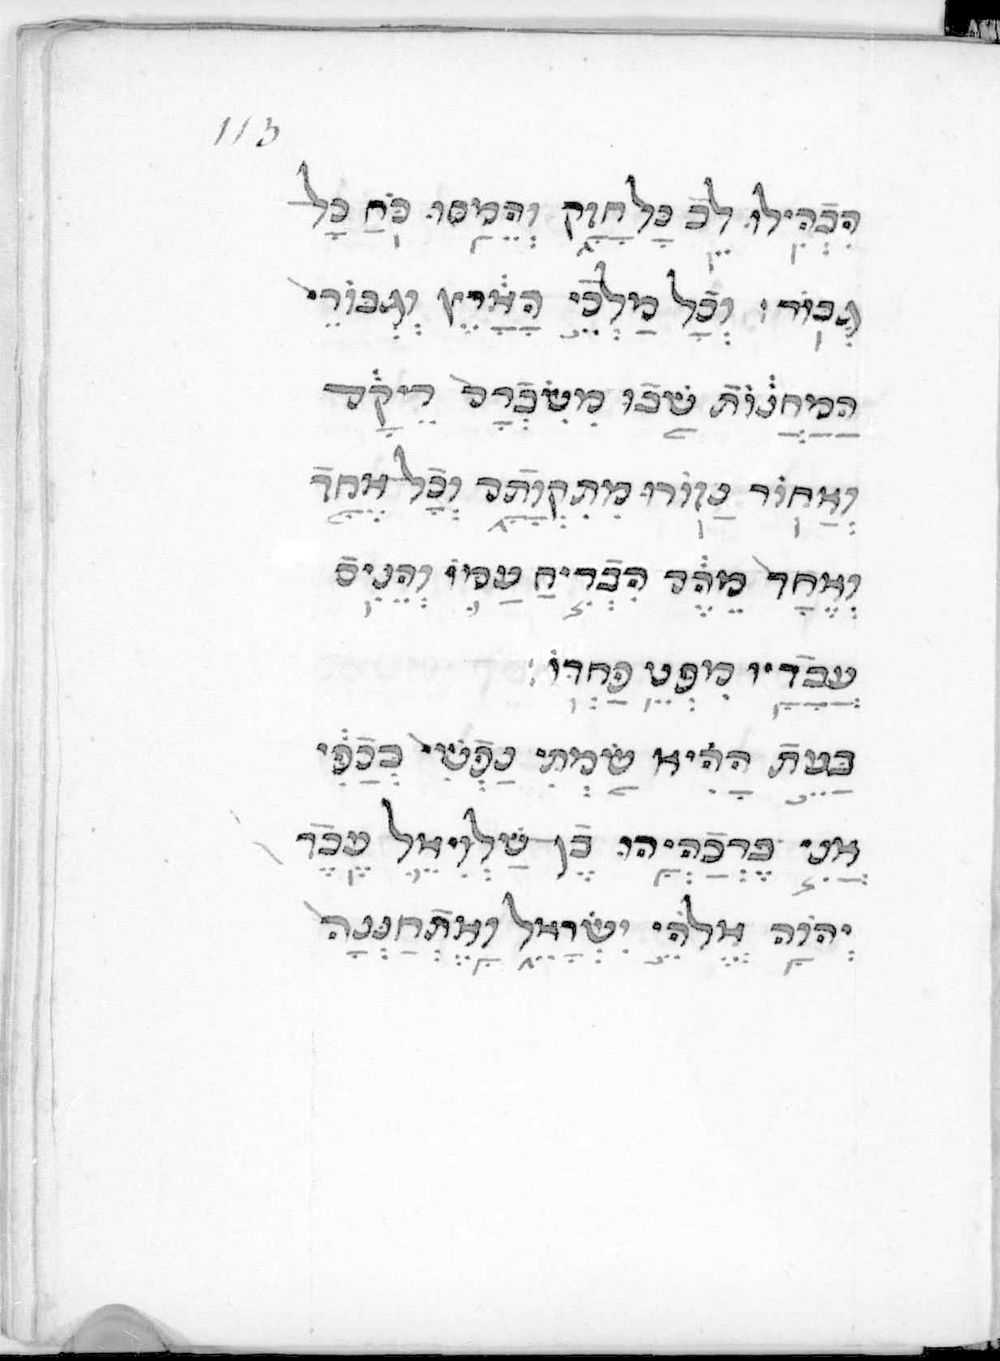 113
הִבְּהִילוּ לֵב כָּל חָזָק וְהֵמֵסוּ כֹּחַ כָּל
גִּבּוֹר׃ וְכָל מַלְכֵי הָאָרֶץ וְגִבּוֹרֵי
הַמַּחֲנוֹת שָׁבוּ
וְאָחוֹר נָזוֹרוּ מִתִּקְוָתָם וְכָל אֶחָד
וְאֶחָד מֵהֶם הִבְרִיחַ עַמּוֹ וְהֵנִיס
עֲבָדָיו מִפְּנֵי פַּחְדּוֹ׃
בָּעֵת הַהִיא שַׂמְתִּי נַפְשִׁי בְכַפִּי
אֲנִי בֶּרֶכְיָהוּ בֶּן שַׁלְוִיאֵל עֶבֶד
יְהוָה אֱלֹהֵי יִשְׂרָאֵל וָאֶתְחַנְּנָה